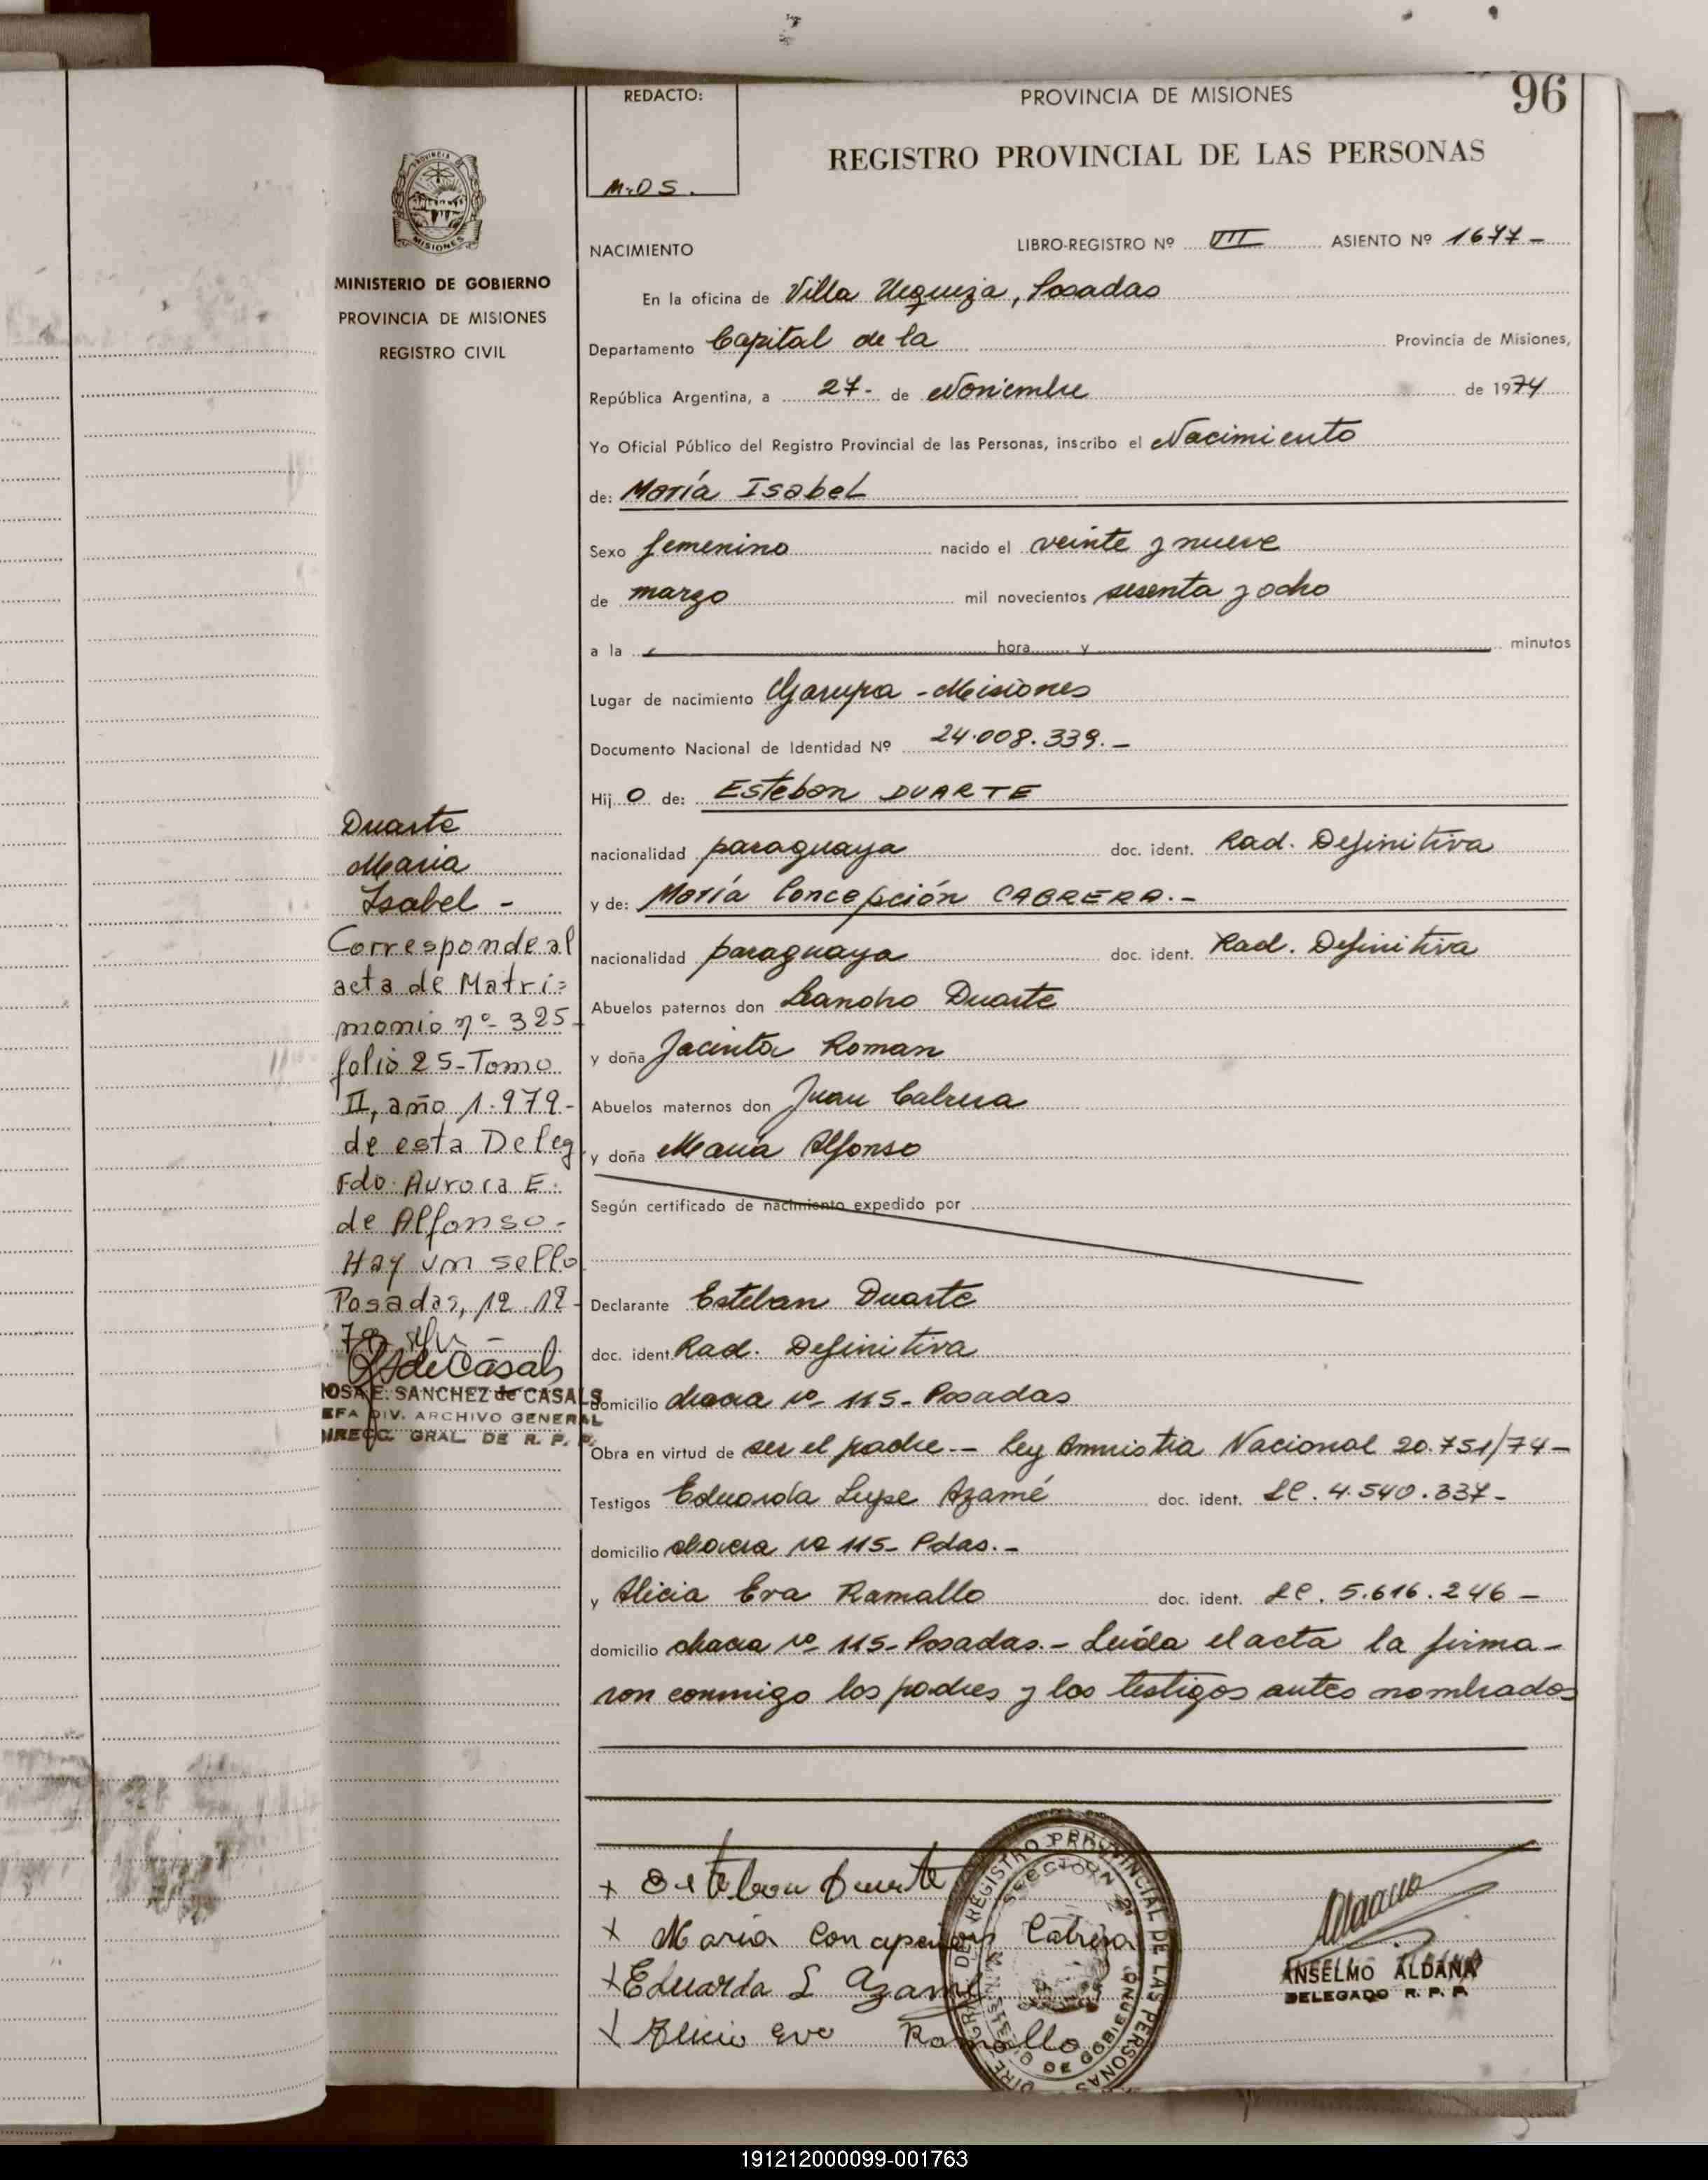 REDACTO:
M.O.S.
PROVINCIA DE MISIONES
96
REGISTRO PROVINCIAL DE LAS PERSONAS
PROVINCIA DE
MISIONES
MINISTERIO DE GOBIERNO
PROVINCIA DE MISIONES
REGISTRO CIVIL
NACIMIENTO
LIBRO-REGISTRO Nº VII ASIENTO Nº 1677-
En la oficina de Villa Urquiza, Posadas
Departamento Capital de la Provincia de Misiones,
República Argentina, a 27- de Noviembre de 1974
Yo Oficial Público del Registro Provincial de las Personas, inscribo el Nacimiento
de: María Isabel
Sexo femenino nacido el veinte y nueve
de marzo mil novecientos sesenta y ocho
a la hora y minutos
Lugar de nacimiento Garupa - Misiones
Documento Nacional de Identidad Nº 24.008.339.-
Hij o de: Esteban DUARTE
nacionalidad paraguaya doc. ident. Rad. Definitiva
y de: María Concepción CABRERA.-
nacionalidad paraguaya doc. ident. Rad. Definitiva
Abuelos paternos don Leandro Duarte
y doña Jacinta Roman
Abuelos maternos don Juan Cabrera
y doña Maria Alfonso
Según certificado de nacimiento expedido por
Declarante Esteban Duarte
doc. ident. Rad. Definitiva
domicilio chacra nº 115- Posadas
Obra en virtud de ser el padre.- Ley Amnistia Nacional 20.751/74-
Testigos Eduarda Lupe Azamé doc. ident. LC. 4.540.337-
domicilio chacra nº 115- Pdas.-
y Alicia Eva Ramallo doc. ident. LC. 5.616.246-
domicilio chacra nº 115- Posadas.- Leída el acta la firma-
ron conmigo los padres y los testigos antes nombrados
Duarte
Maria
Isabel -
Corresponde al
acta de Matri=
monio nº 325-
folio 25-Tomo
II, año 1.979.-
de esta Deleg
Fdo: Aurora E.
de Alfonso-
Hay un sello
Posadas, 12-12-
79
R S de Casals
ROSA E. SANCHEZ de CASALS
JEFA DIV. ARCHIVO GENERAL
DIRECC. GRAL. DE R. P. P.
x Esteban Duarte
x Maria Concepcion Cabrera
x Eduarda L Azamé
x Alicia Eva Ramallo
DIRE. GRAL. DEL REGISTRO PROVINCIAL DE LAS PERSONAS
SECCION 2ª
MINISTERIO DE GOBIERNO
Aldana
ANSELMO ALDANA
DELEGADO R. P. P.
191212000099-001763